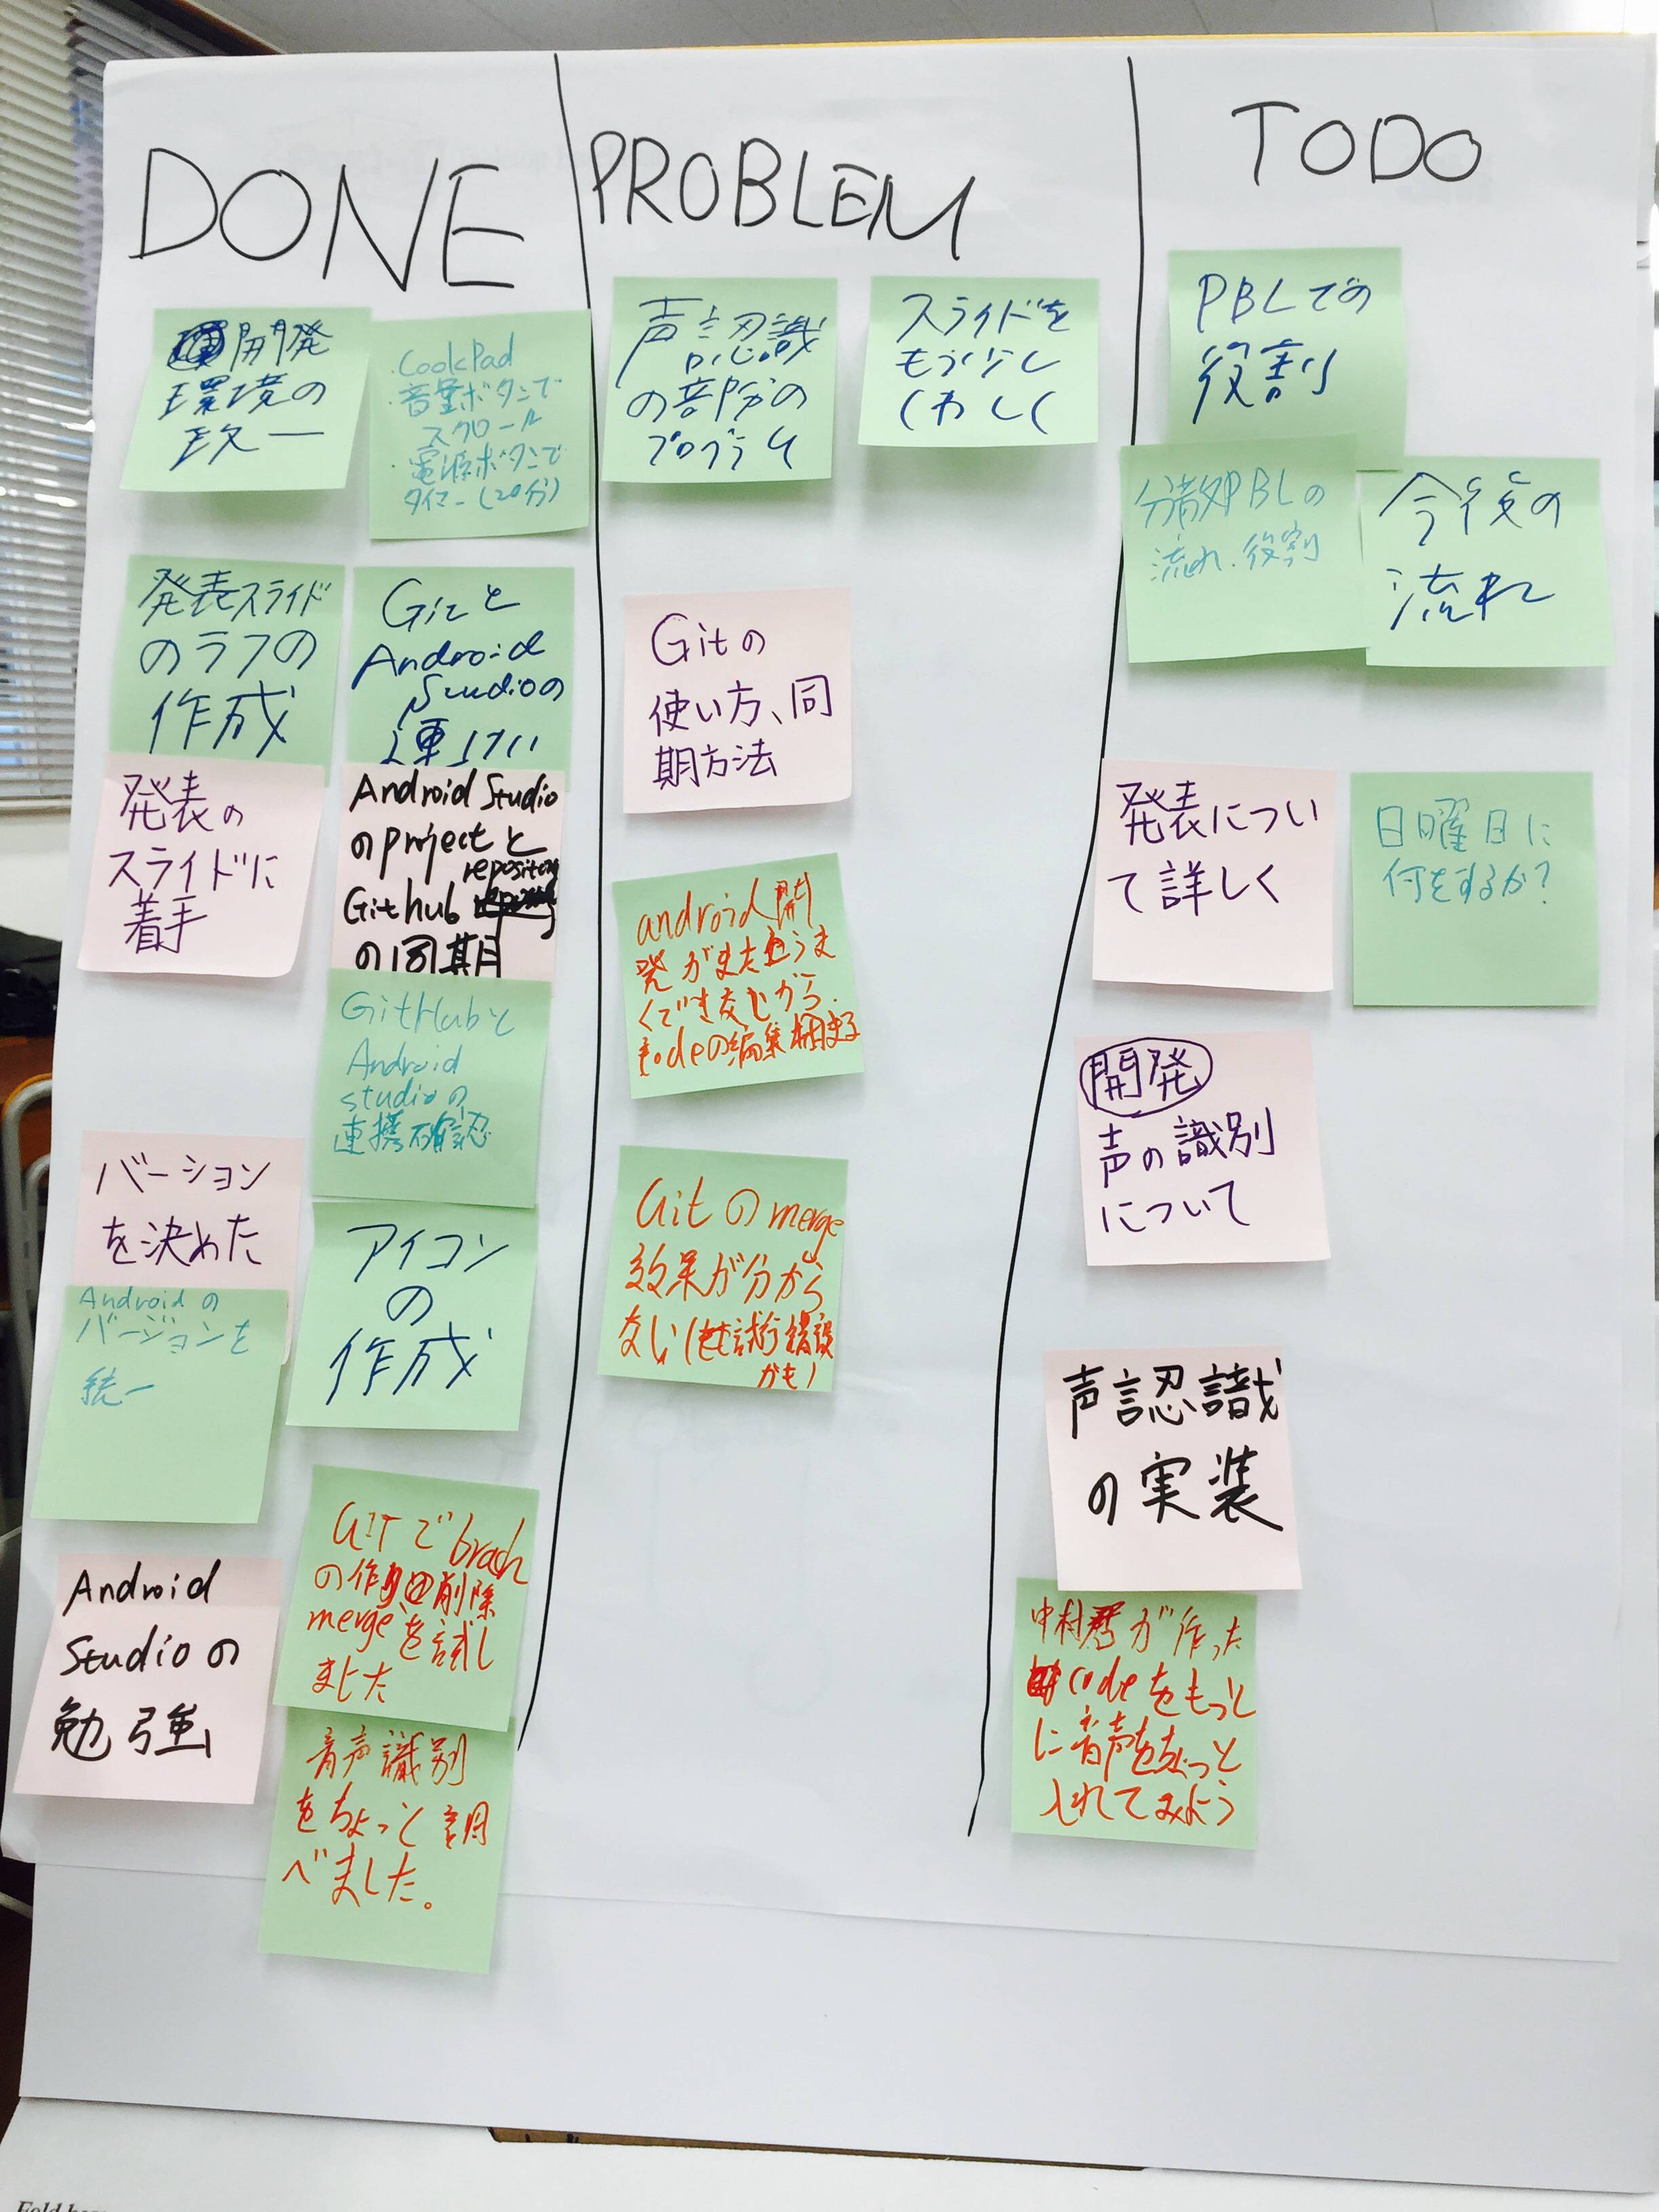 DONE
PROBLEM
TODO
開発
環境の
統一
・CookPad
・音量ボタンで
スクロール
・電源ボタンで
タイマー(20分)
発表スライド
のラフの
作成
Gitと
Android
Studioの
連けい
発表の
スライドに
着手
Android Studio
のprojectと
repository
Github
の同期
GitHubと
Android
studioの
連携確認
バーション
を決めた
アイコン
の
作成
Androidの
バージョンを
統一
GITでbrach
の作成 削除
mergeを試し
ました
Android
Studioの
勉強
音声識別
をちょっと調
べました。
声認識
の部分の
プログラム
スライドを
もう少し
くわしく
Gitの
使い方、同
期方法
android開
発がまだうま
くできないから
codeの編集
Gitのmerge
効果が分から
ない 試行錯誤
かも)
PBLでの
役割
分散PBLの
流れ、役割
今後の
流れ
発表につい
て詳しく
日曜日に
何をするか?
開発
声の識別
について
声認識
の実装
中村 が作った
codeをもっと
に音声をちょっと
入れてみよう
Fold